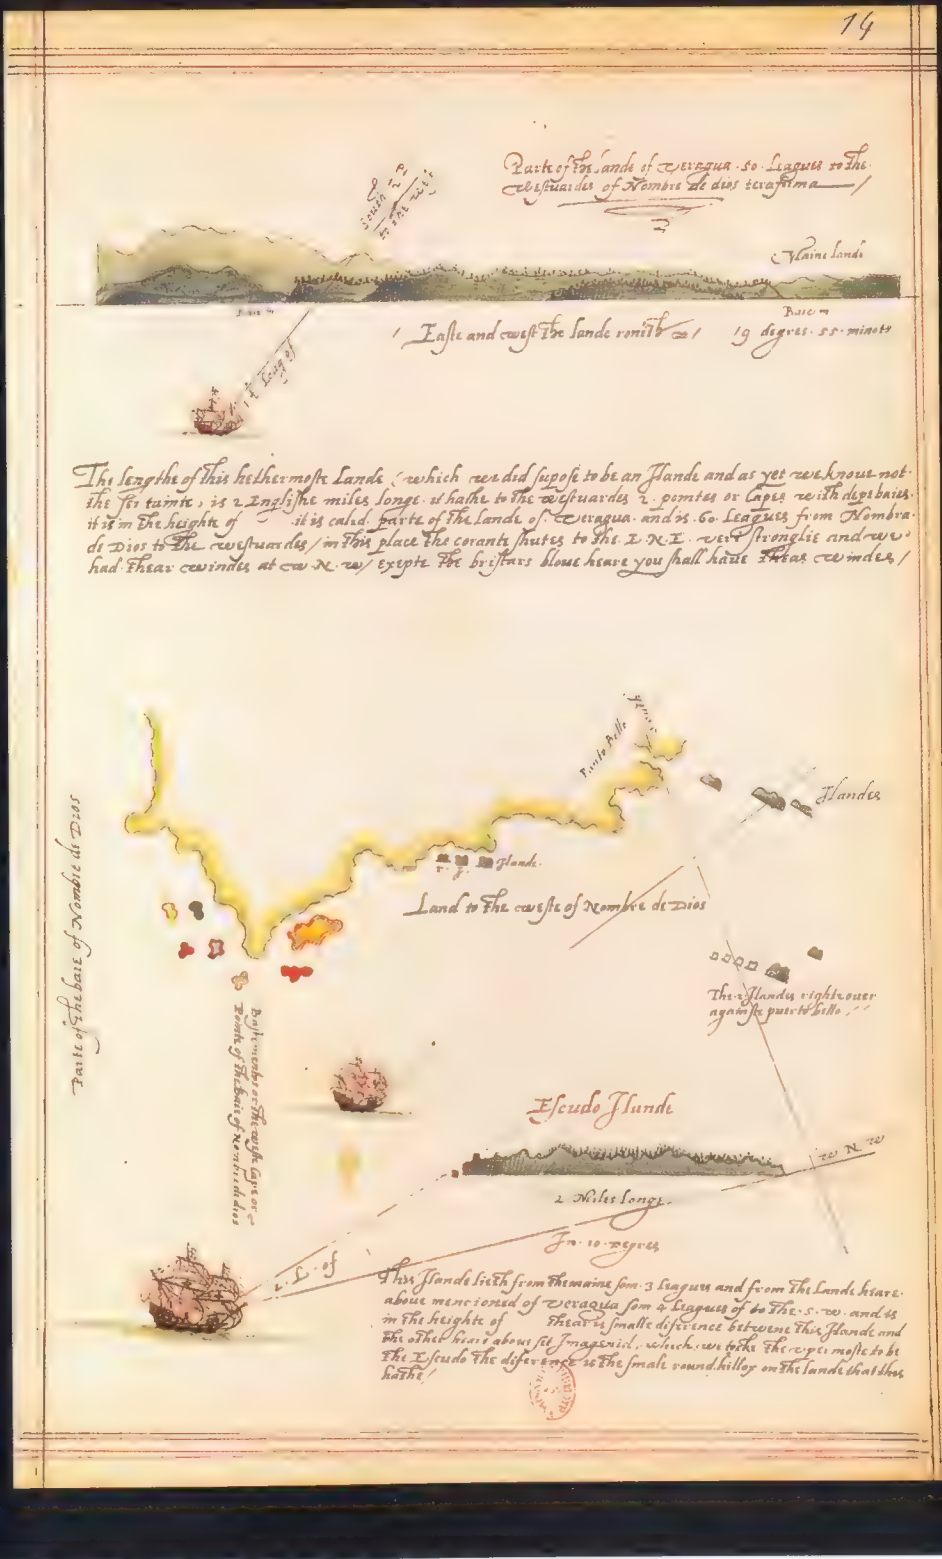 14
Parte of the lande of Veragua 50 Leagues to the
Westuardes of Nombre de dios terafirma
South
to the
Maine lande
1 L Leag of
Easte and west the lande ronith
9 degres 55 minots
The lengthe of this hethermoste Lande (which we did supose to be an Ilande and as yet we knowe not
the sertainte, is 2 Englishe miles longe. it hathe to the westuardes 2 pointes or Capes with depe baies.
it is in the heighte of it is caled parte of the Lande of Veragua and is 60 Leagues from Nombra
de Dios to the westuardes / in this place the corante shutes to the E.N.E. vere stronglie and we
had thear windes at W.N.W / exepte the bristars blowe heare you shall have theas windes /
Punto Bello
Ilandes
Ilande
Land to the weste of Nombre de Dios
Parte of the baie of Nombre de Dios
The 2 Ilandes righte over
againste puerto bello
Bastimentos or the weste Cape or
Pointe of the baie of Nombre de dios
Escudo Ilande
W N W
2 Miles longe
In 10 Degres
L of
This Ilande lieth from the maine som 3 Leagues and from the Lande heare
above mencioned of Veragua som 4 Leagues of to the S.W. and is
in the heighte of thear is smalle diference betwene this Ilande and
the other heare above set Imagenid, which we tocke the upermoste to be
the Escudo the diference is the smale round hillox on the lande that thes
hathe /